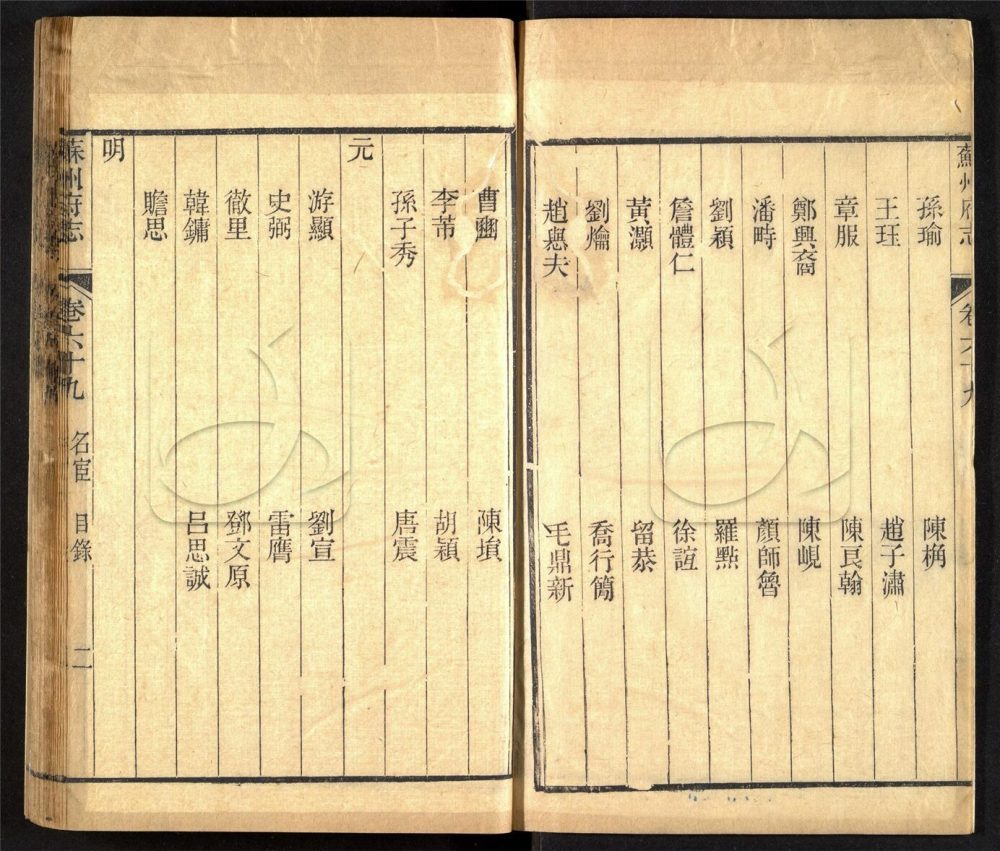 蘇州府志
孫瑜 陳桷
王珏 趙子潚
章服 陳良翰
鄭興裔 陳峴
潘時 顏師魯
劉穎 羅點
詹體仁 徐誼
黃灝 留恭
劉爚 喬行簡
趙與𢡟夫 毛鼎新
曹豳 陳塤
李芾 胡穎
孫子秀 唐震
元
游顯 劉宣
史弼 雷膺
徹里 鄧文原
韓鏞 呂思誠
贍思
明
蘇州府志 卷六十九 名宦 目錄 二